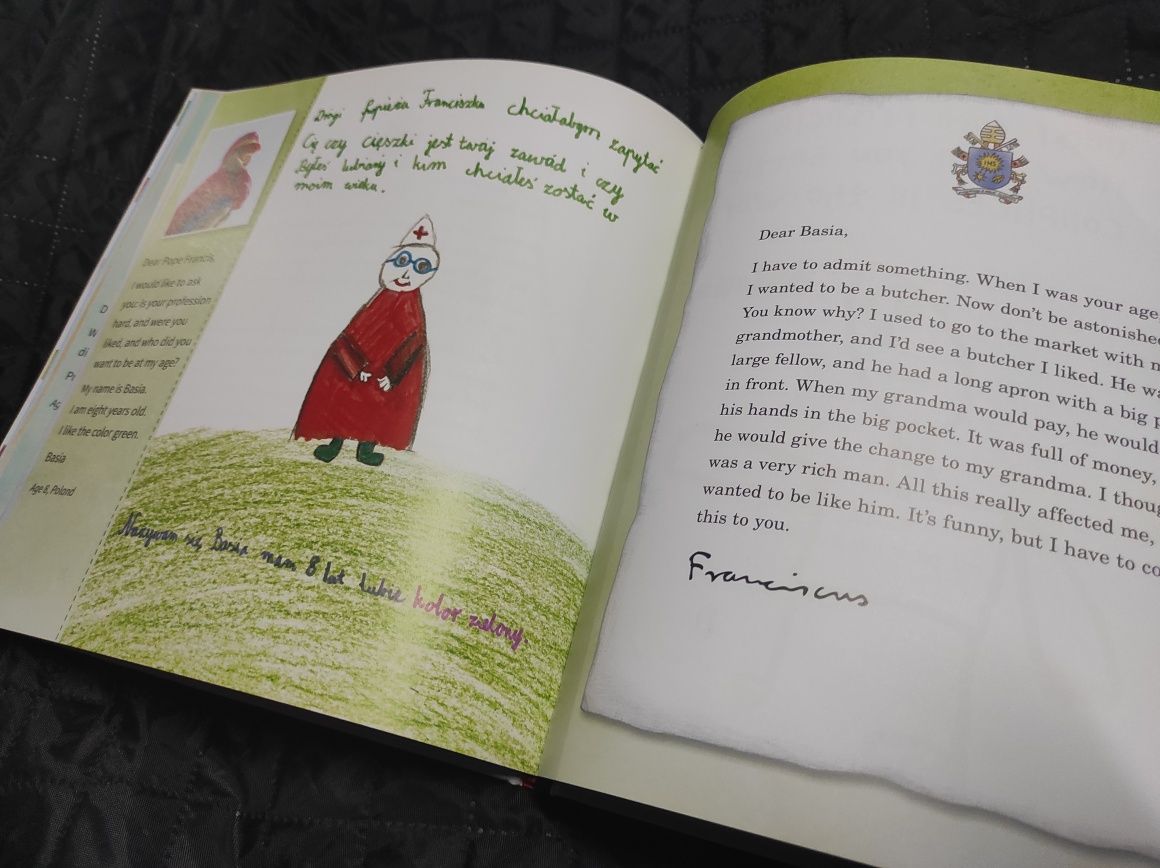 Drogi Papieżu Franciszku chciałabym zapytać
Cię czy cięszki jest twój zawód i czy
Byłeś lubiany i kim chciałeś zostać w
moim wieku.
Nazywam się Basia mam 8 lat lubię kolor zielony
Dear Pope Francis,
I would like to ask
you: is your profession
hard, and were you
liked, and who did you
want to be at my age?
My name is Basia.
I am eight years old.
I like the color green.
Basia
Age 8, Poland
IHS
Dear Basia,
I have to admit something. When I was your age,
I wanted to be a butcher. Now don't be astonished
You know why? I used to go to the market with
grandmother, and I'd see a butcher I liked. He
large fellow, and he had a long apron with a big
in front. When my grandma would pay, he would
his hands in the big pocket. It was full of money,
he would give the change to my grandma. I
was a very rich man. All this really affected me,
wanted to be like him. It's funny, but I have to
this to you.
Franciscus